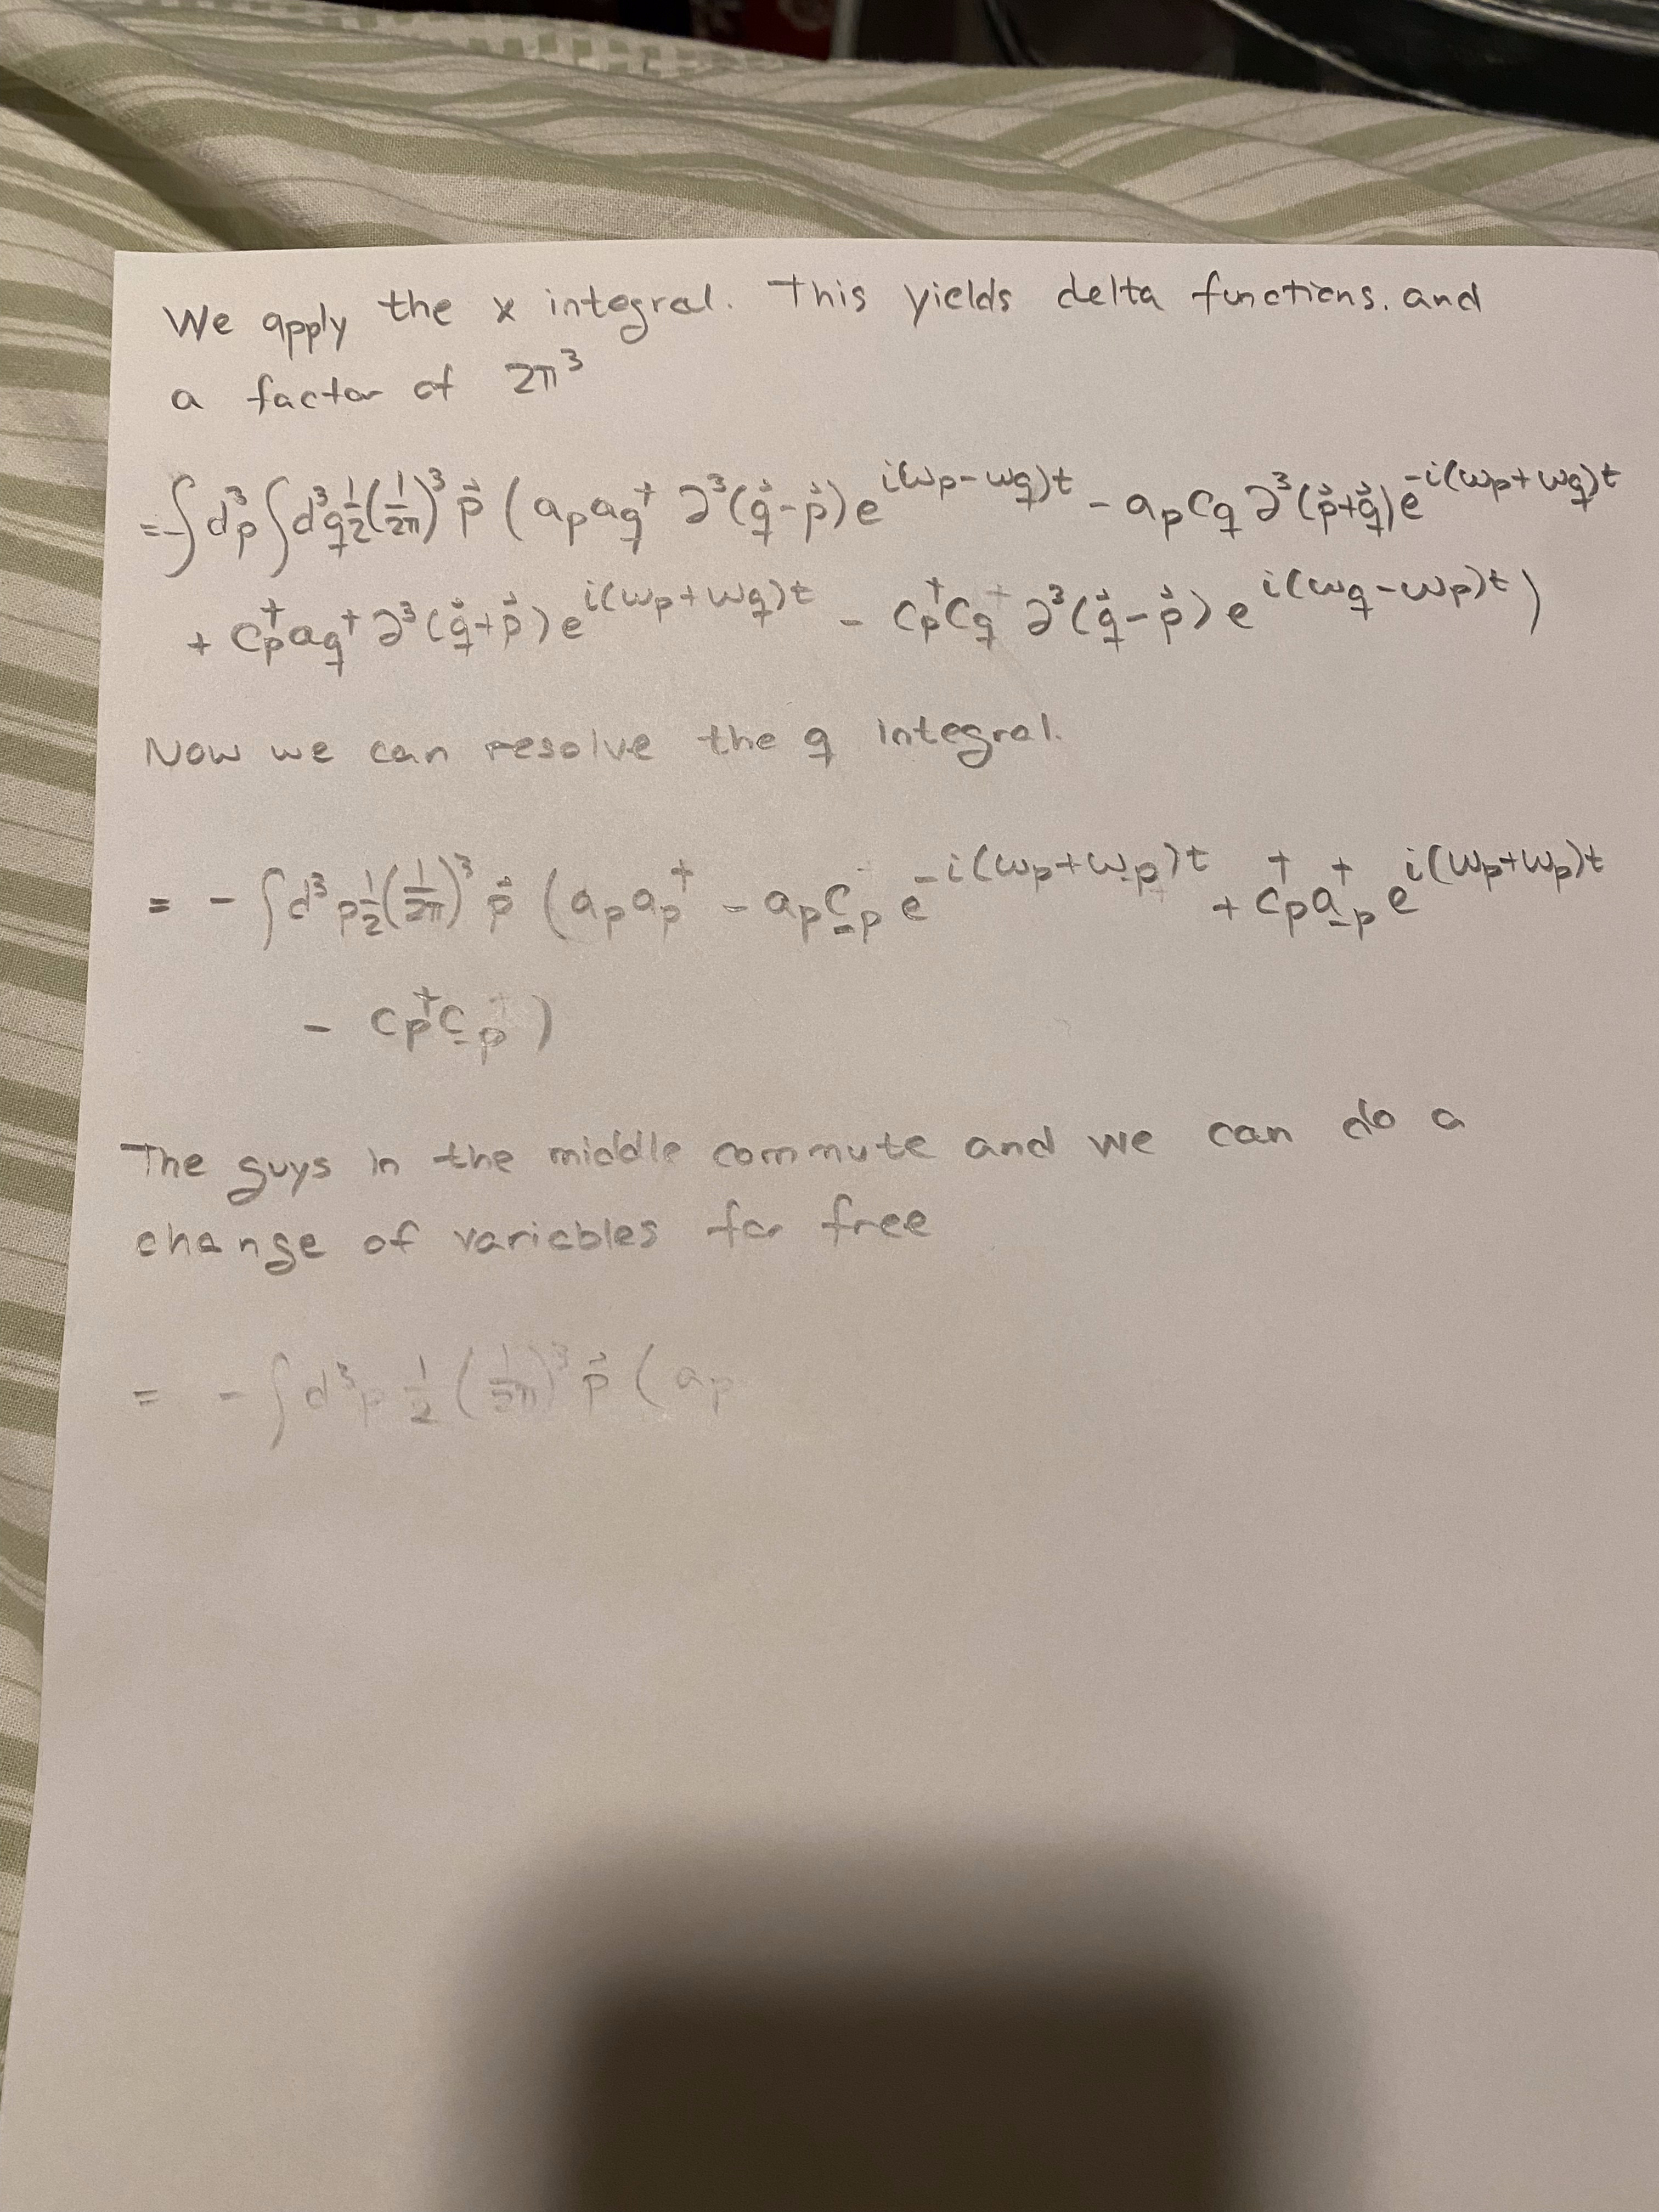 We apply the x integral. This yields delta functions. and
a factor of 2π³
= -∫d³p ∫d³q ½(1/2π)³ p⃗ (aₚa_q† ∂³(q⃗-p⃗)e^{i(ωp-ωq)t} - aₚc_q ∂³(p⃗+q⃗)e^{-i(ωp+ωq)t}
+ cₚ†a_q† ∂³(q⃗+p⃗)e^{i(ωp+ωq)t} - cₚ†c_q ∂³(q⃗-p⃗)e^{i(ωq-ωp)t})
Now we can resolve the q integral.
= -∫d³p ½(1/2π)³ p⃗ (aₚaₚ† - aₚc₋ₚ e^{-i(ωp+ω-p)t} + cₚ†a₋ₚ† e^{i(ωp+ωp)t}
- cₚ†c₋ₚ)
The guys in the middle commute and we can do a
change of variables for free
= -∫d³p ½(1/2π)³ p⃗ (aₚ